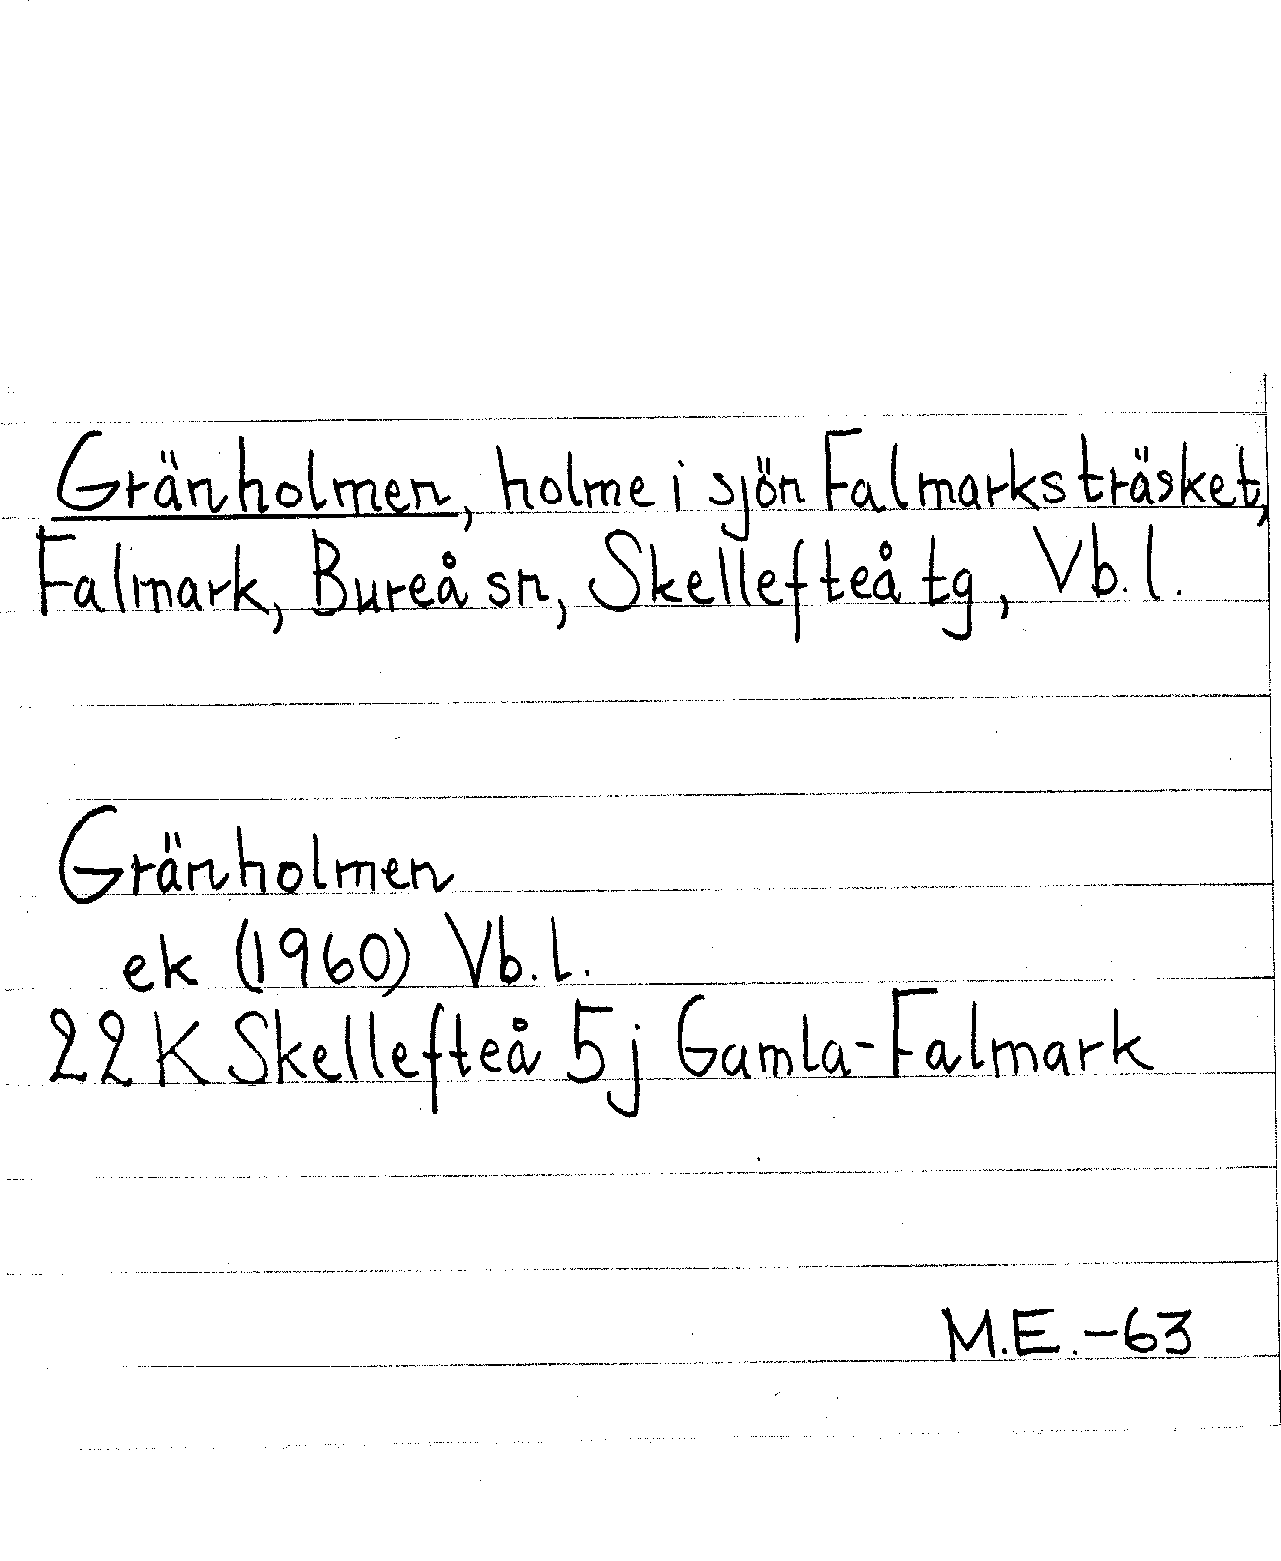 Gränholmen, holme i sjön Falmarksträsket,
Falmark, Bureå sn, Skellefteå tg, Vb. l.
Gränholmen
ek (1960) Vb. l.
22K Skellefteå 5j Gamla-Falmark
M.E. -63